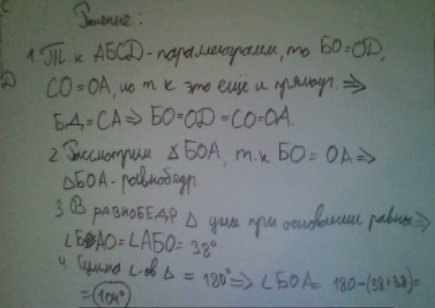 С
Решение:
1. Т.к АБСД - параллелограмм, то БО=OD,
D
СО=ОА, но т к это ещё и прямоуг. ⇒
БД=СА⇒ БО=OD=СО=ОА.
2 Рассмотрим ΔБОА, т.к БО=ОА⇒
ΔБОА-равнобедр.
3 В РАВНОБЕДР Δ углы при основании равны⇒
∠БАО=∠АБО=38°
4 Сумма ∠-ов Δ = 180°⇒ ∠БОА= 180-(38+38)=
= 104°